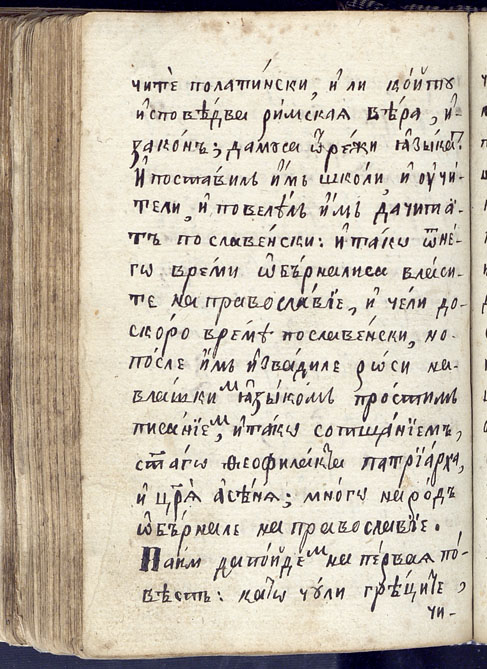 чите̏ полати́нски, и҆ ли ко́йто
и҆сповѣ́два ри́мская вѣ́ра, и҆
зако́нъ; да мꙋса ѿрѣ́жи ꙗ҆зы́ка.
И҆ поста́вилъ и҆мъ школи, и҆ ᲂу҆чи́-
тели, и҆ повелѣ́лъ и҆мъ да чита́-
тъ по славе́нски: и҆ та́кѡ ѿне́-
гѡ вре́ми ѡ҆бърналиса вла́си-
те на правосла́вїе, и҆ че́ли до-
ско́ро вре́мѧ пославе́нски, но
после и҆мъ и҆звадиле ѡси на-
вла́шкиⷨ ꙗ҆зы́комъ прости́мъ
писанїеⷨ, и҆ та́кѡ со тща́нїемъ,
ст҃а́гѡ ѳеофила́кта патрїа́рха,
и҆ цр҃ѧ̀ а҆сѣ́нѧ; мно́гѡ наро́дъ
ѡ҆бърнале на правосла́вїе.
Паки да по́йдеⷨ на пе́рваѧ по́-
вѣсть: катѡ чꙋ́ли грѣ́ците,
чи-